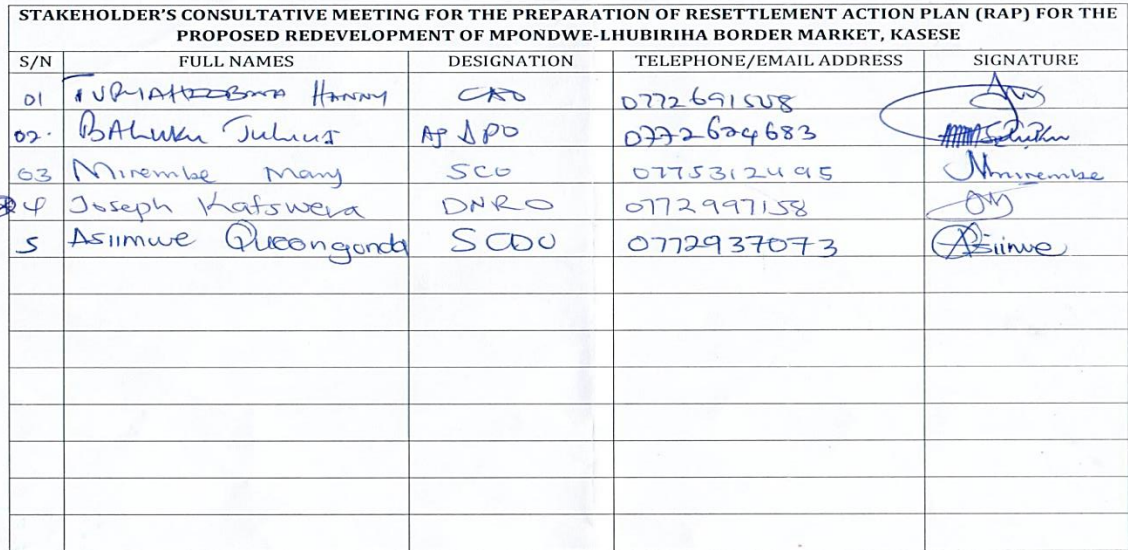 STAKEHOLDER'S CONSULTATIVE MEETING FOR THE PREPARATION OF RESETTLEMENT ACTION PLAN (RAP) FOR THE
PROPOSED REDEVELOPMENT OF MPONDWE-LHUBIRIHA BORDER MARKET, KASESE
S/N FULL NAMES DESIGNATION TELEPHONE/EMAIL ADDRESS SIGNATURE
01 CAO 0772691508
02. BALUKU Julius Ag DPO 0772624683
03 Mirembe Mary SCO 0775312495 Nmirembe
4 Joseph Katswera DNRO 0772997158
5 Asiimwe SCDO 0772937073 Asiimwe